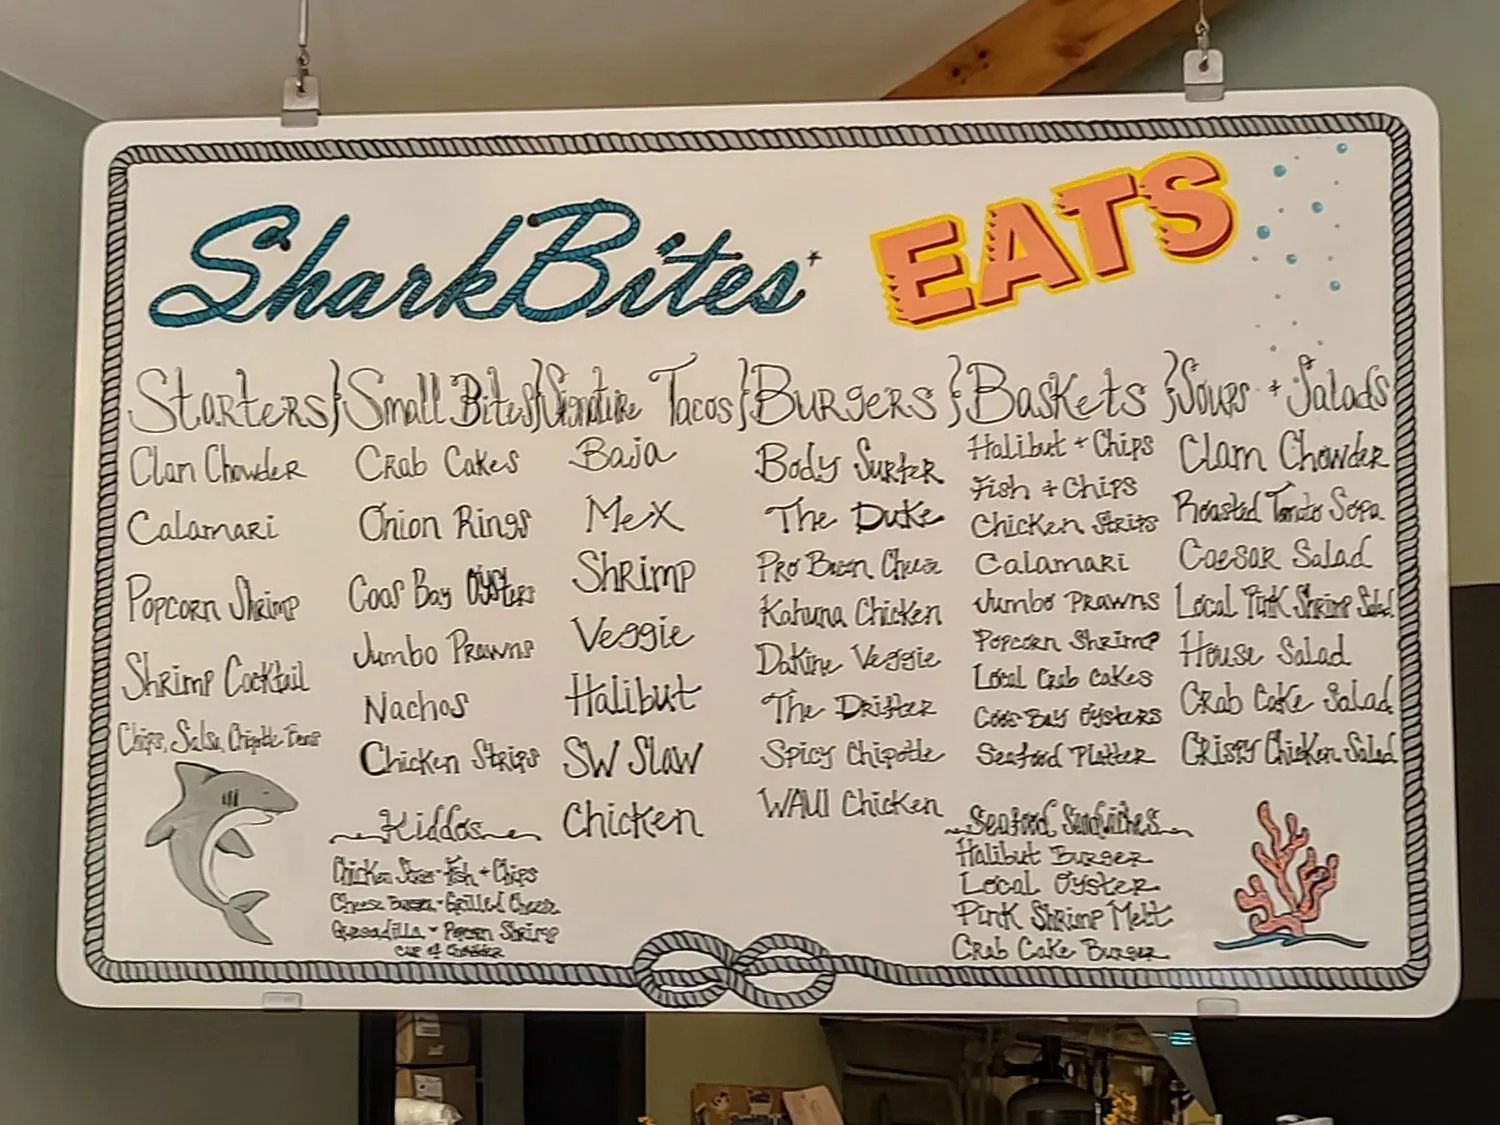 SharkBites EATS
Starters
Clam Chowder
Calamari
Popcorn Shrimp
Shrimp Cocktail
Chips, Salsa, Chipotle
Small Bites
Crab Cakes
Onion Rings
Coos Bay Oysters
Jumbo Prawns
Nachos
Chicken Strips
Kiddos
Chicken Strips - Fish + Chips
Cheese Burger - Grilled Cheese
Quesadilla - Popcorn Shrimp
Cup of Chowder
Signature Tacos
Baja
Mex
Shrimp
Veggie
Halibut
SW Slaw
Chicken
Burgers
Body Surfer
The Duke
Pro Bacon Cheese
Kahuna Chicken
DaKine Veggie
The Drifter
Spicy Chipotle
WAUI Chicken
Baskets
Halibut + Chips
Fish + Chips
Chicken Strips
Calamari
Jumbo Prawns
Popcorn Shrimp
Local Crab Cakes
Coos Bay Oysters
Seafood Platter
Seafood Sandwiches
Halibut Burger
Local Oyster
Pink Shrimp Melt
Crab Cake Burger
Soups + Salads
Clam Chowder
Roasted Tomato Sopa
Caesar Salad
Local Pink Shrimp Salad
House Salad
Crab Cake Salad
Crispy Chicken Salad